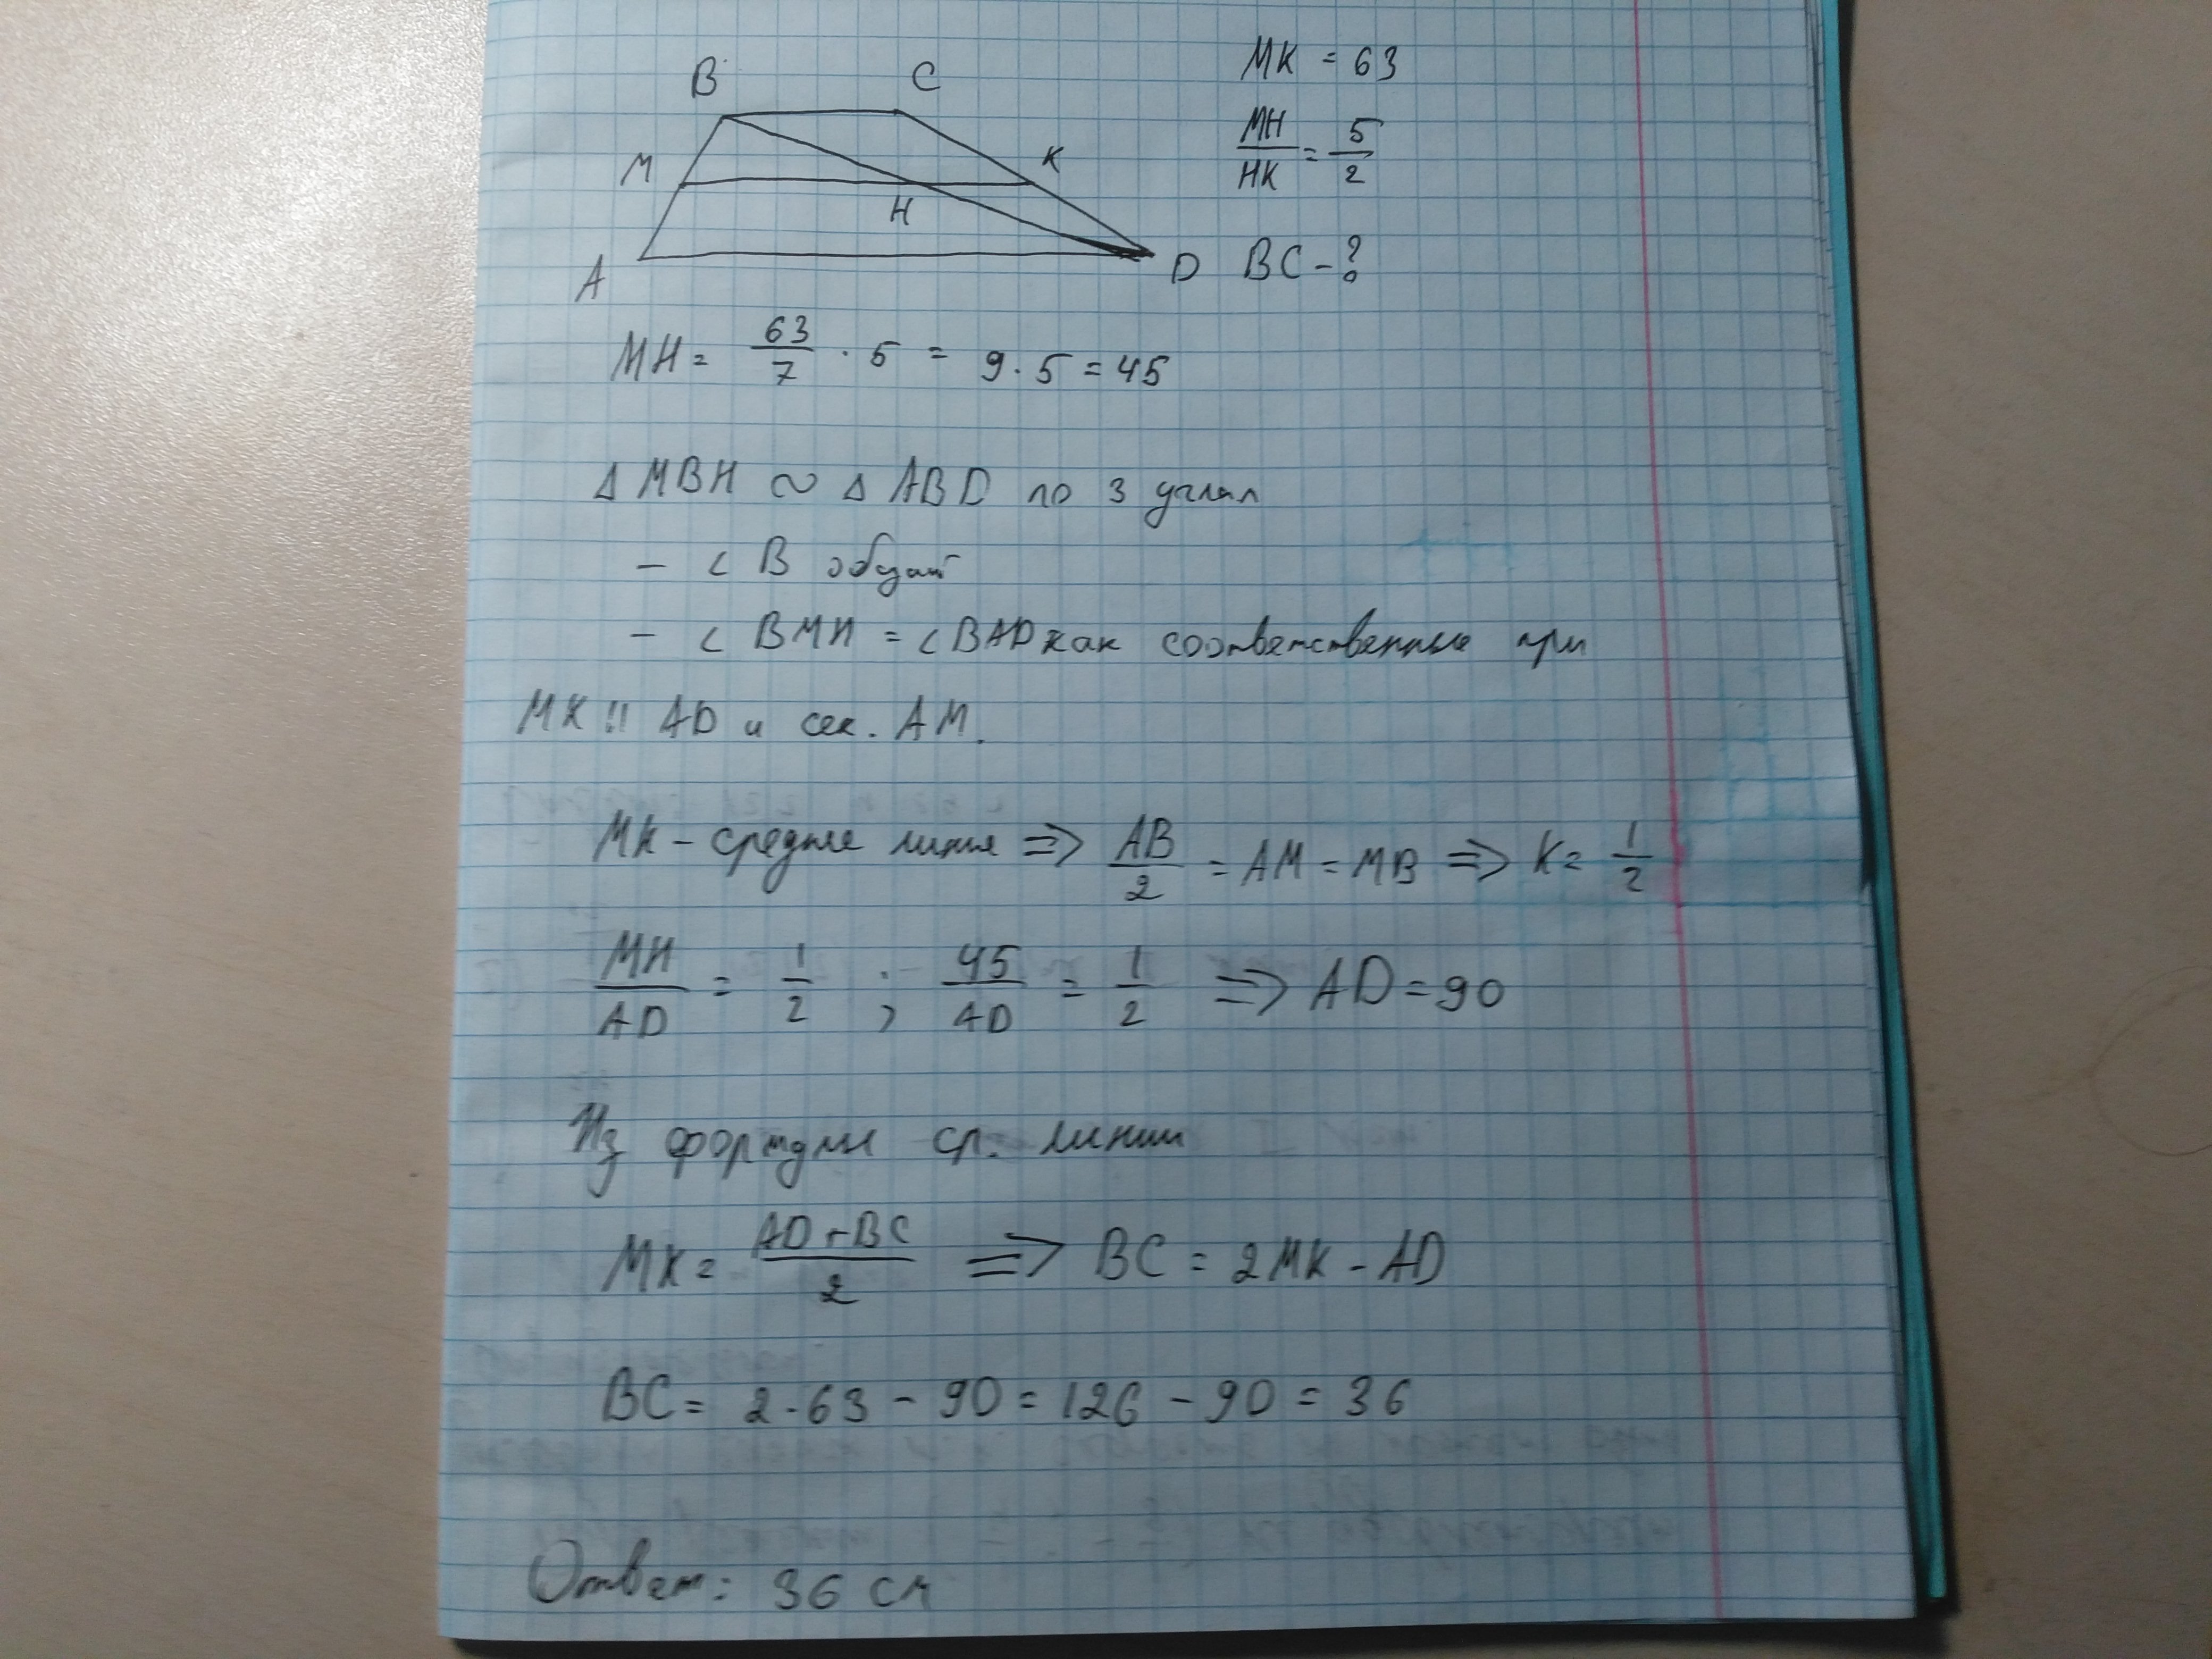 B C
M K
H
A D
MK = 63
MH/HK = 5/2
BC - ?
MH = 63/7 · 5 = 9 · 5 = 45
Δ MBH ∾ Δ ABD по 3 углам
- ∠ B общий
- ∠ BMH = ∠ BAD как соответственные при
MK || AD и сек. AM.
MK - средние линия => AB/2 = AM = MB => K = 1/2
MH/AD = 1/2 ; 45/AD = 1/2 => AD = 90
Из формулы ср. линии
MK = (AD + BC)/2 => BC = 2MK - AD
BC = 2 · 63 - 90 = 126 - 90 = 36
Ответ: 36 см